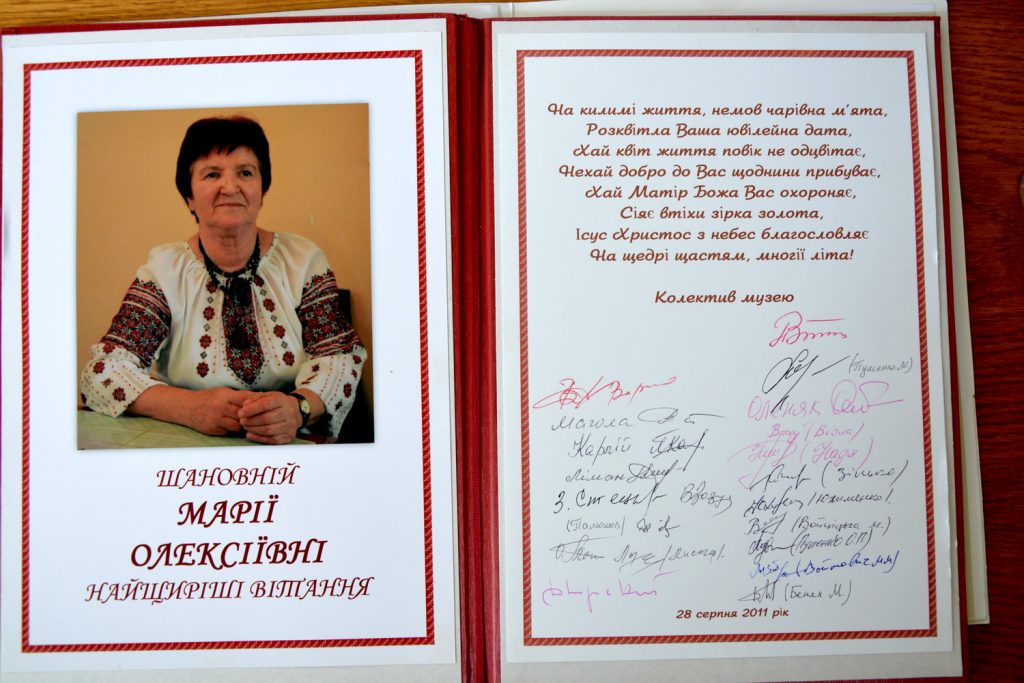 ШАНОВНІЙ
МАРІЇ
ОЛЕКСІЇВНІ
НАЙЩИРІШІ ВІТАННЯ
На килимі життя, немов чарівна м'ята,
Розквітла Ваша ювілейна дата,
Хай квіт життя повік не одцвітає,
Нехай добро до Вас щоднини прибуває,
Хай Матір Божа Вас охороняє,
Сіяє втіхи зірка золота,
Ісус Христос з небес благословляє
На щедрі щастям, многії літа!
Колектив музею
(Пушенко М)
Оленяк
Магола
(Віола)
Карпій
(Надя)
Ліман
(Зінько)
З. Стець
(Юхименко І.
(Лисога).
(Войтович мм)
(Бенех М)
28 серпня 2011 рік